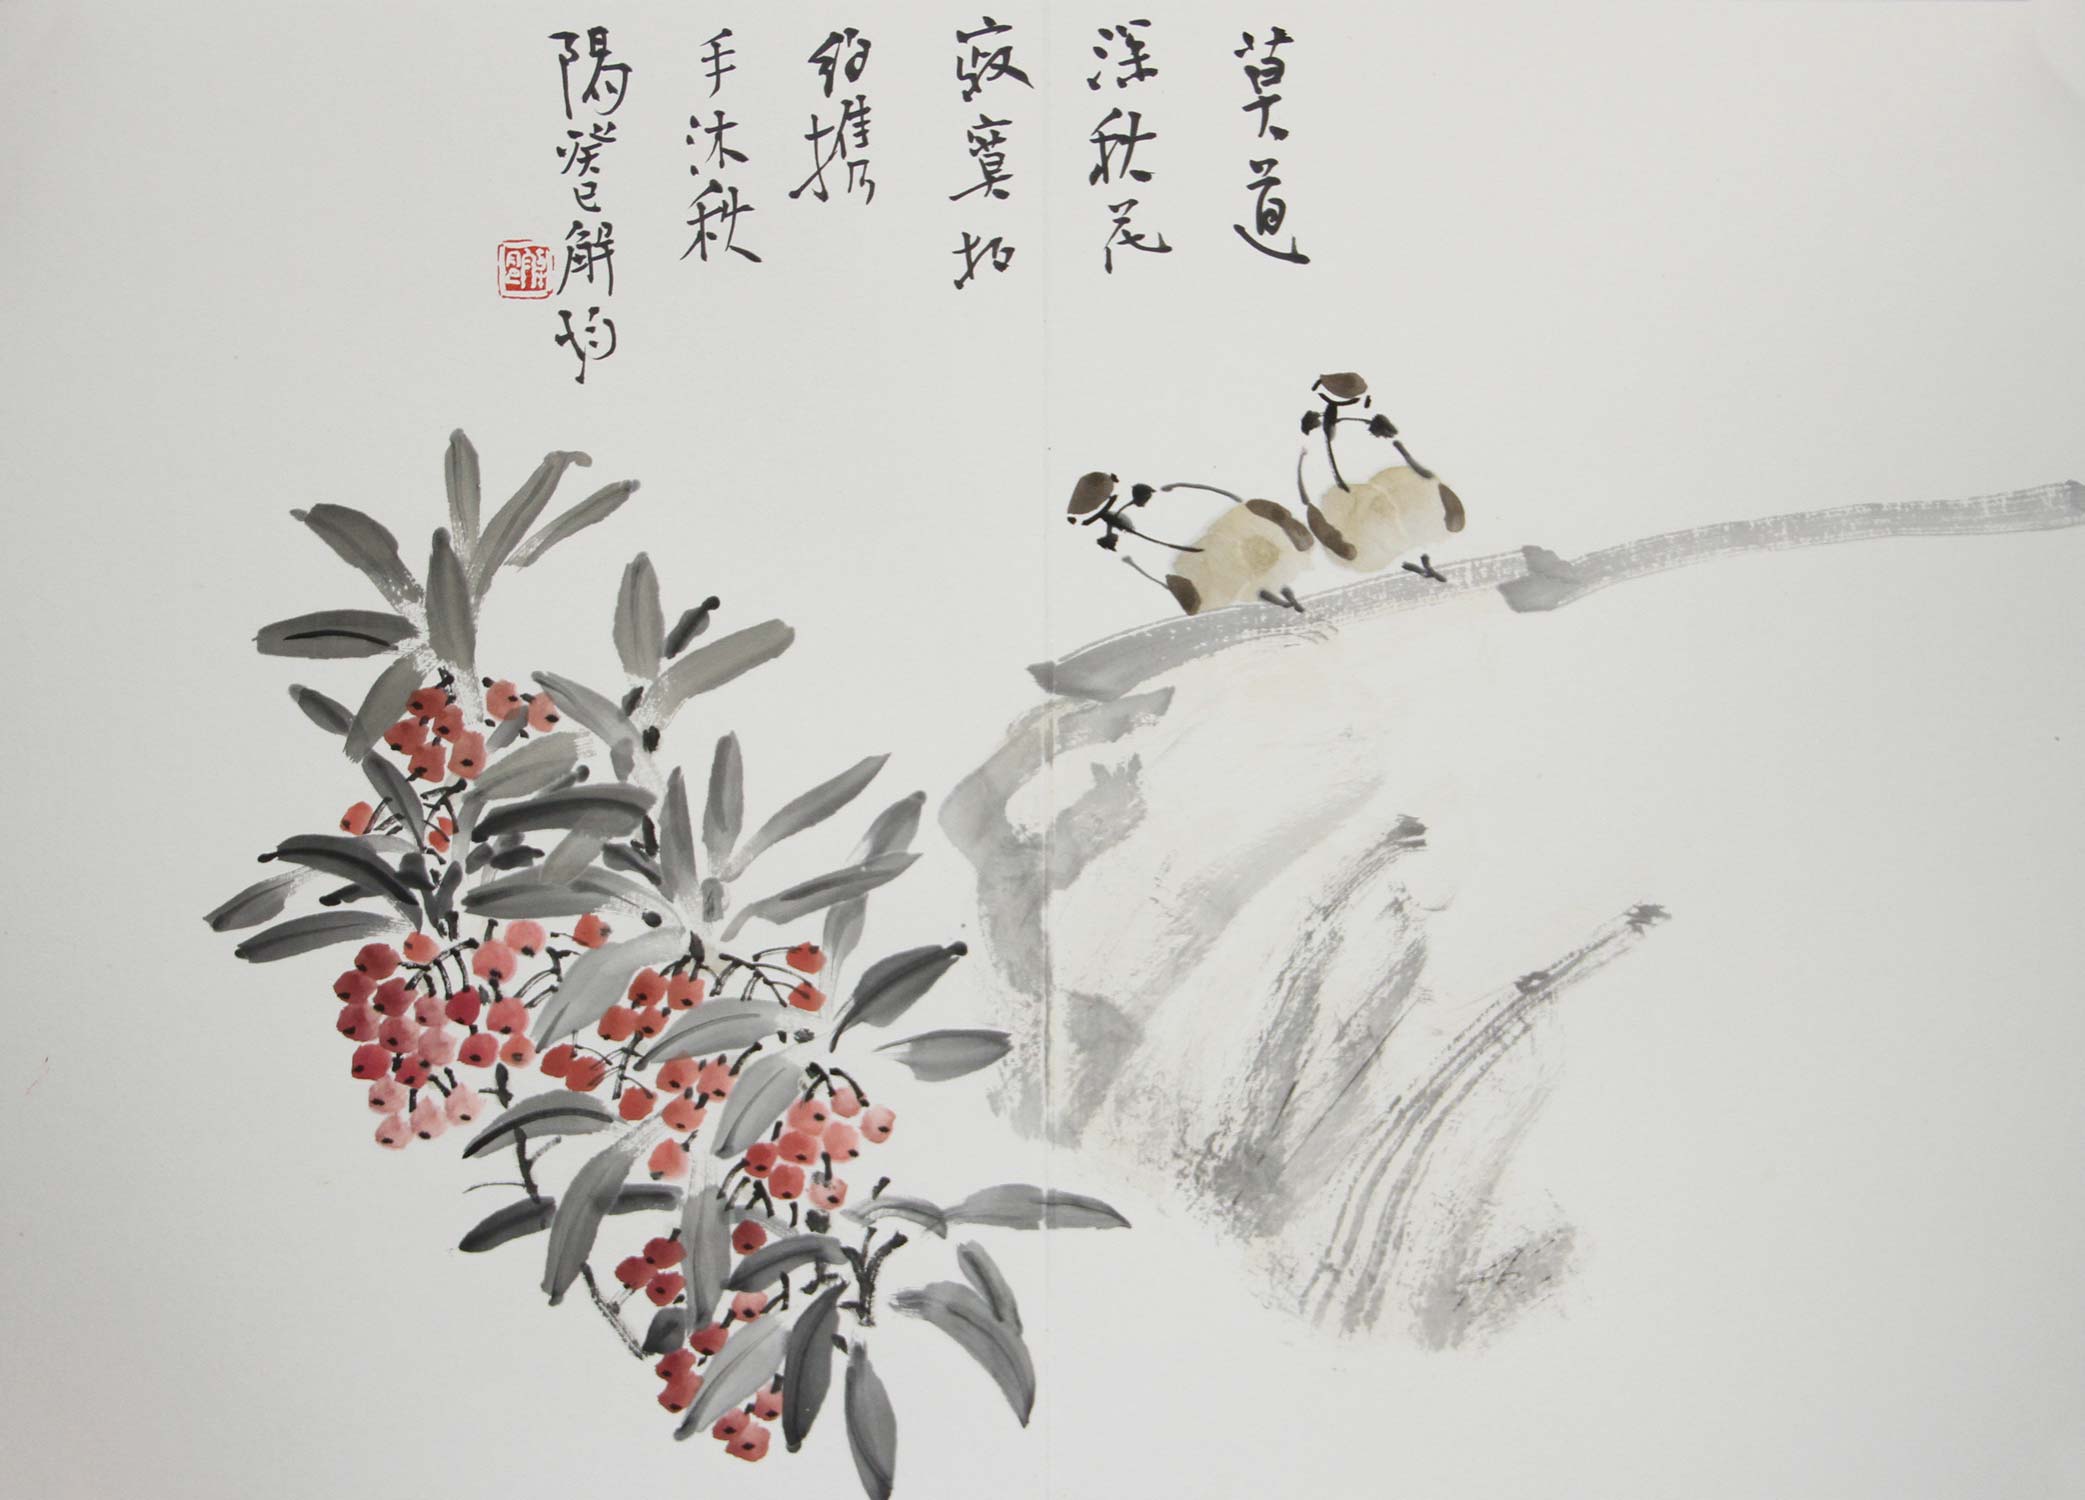 莫道
深秋花
寂寞相
約携
手沐秋
陽癸巳解